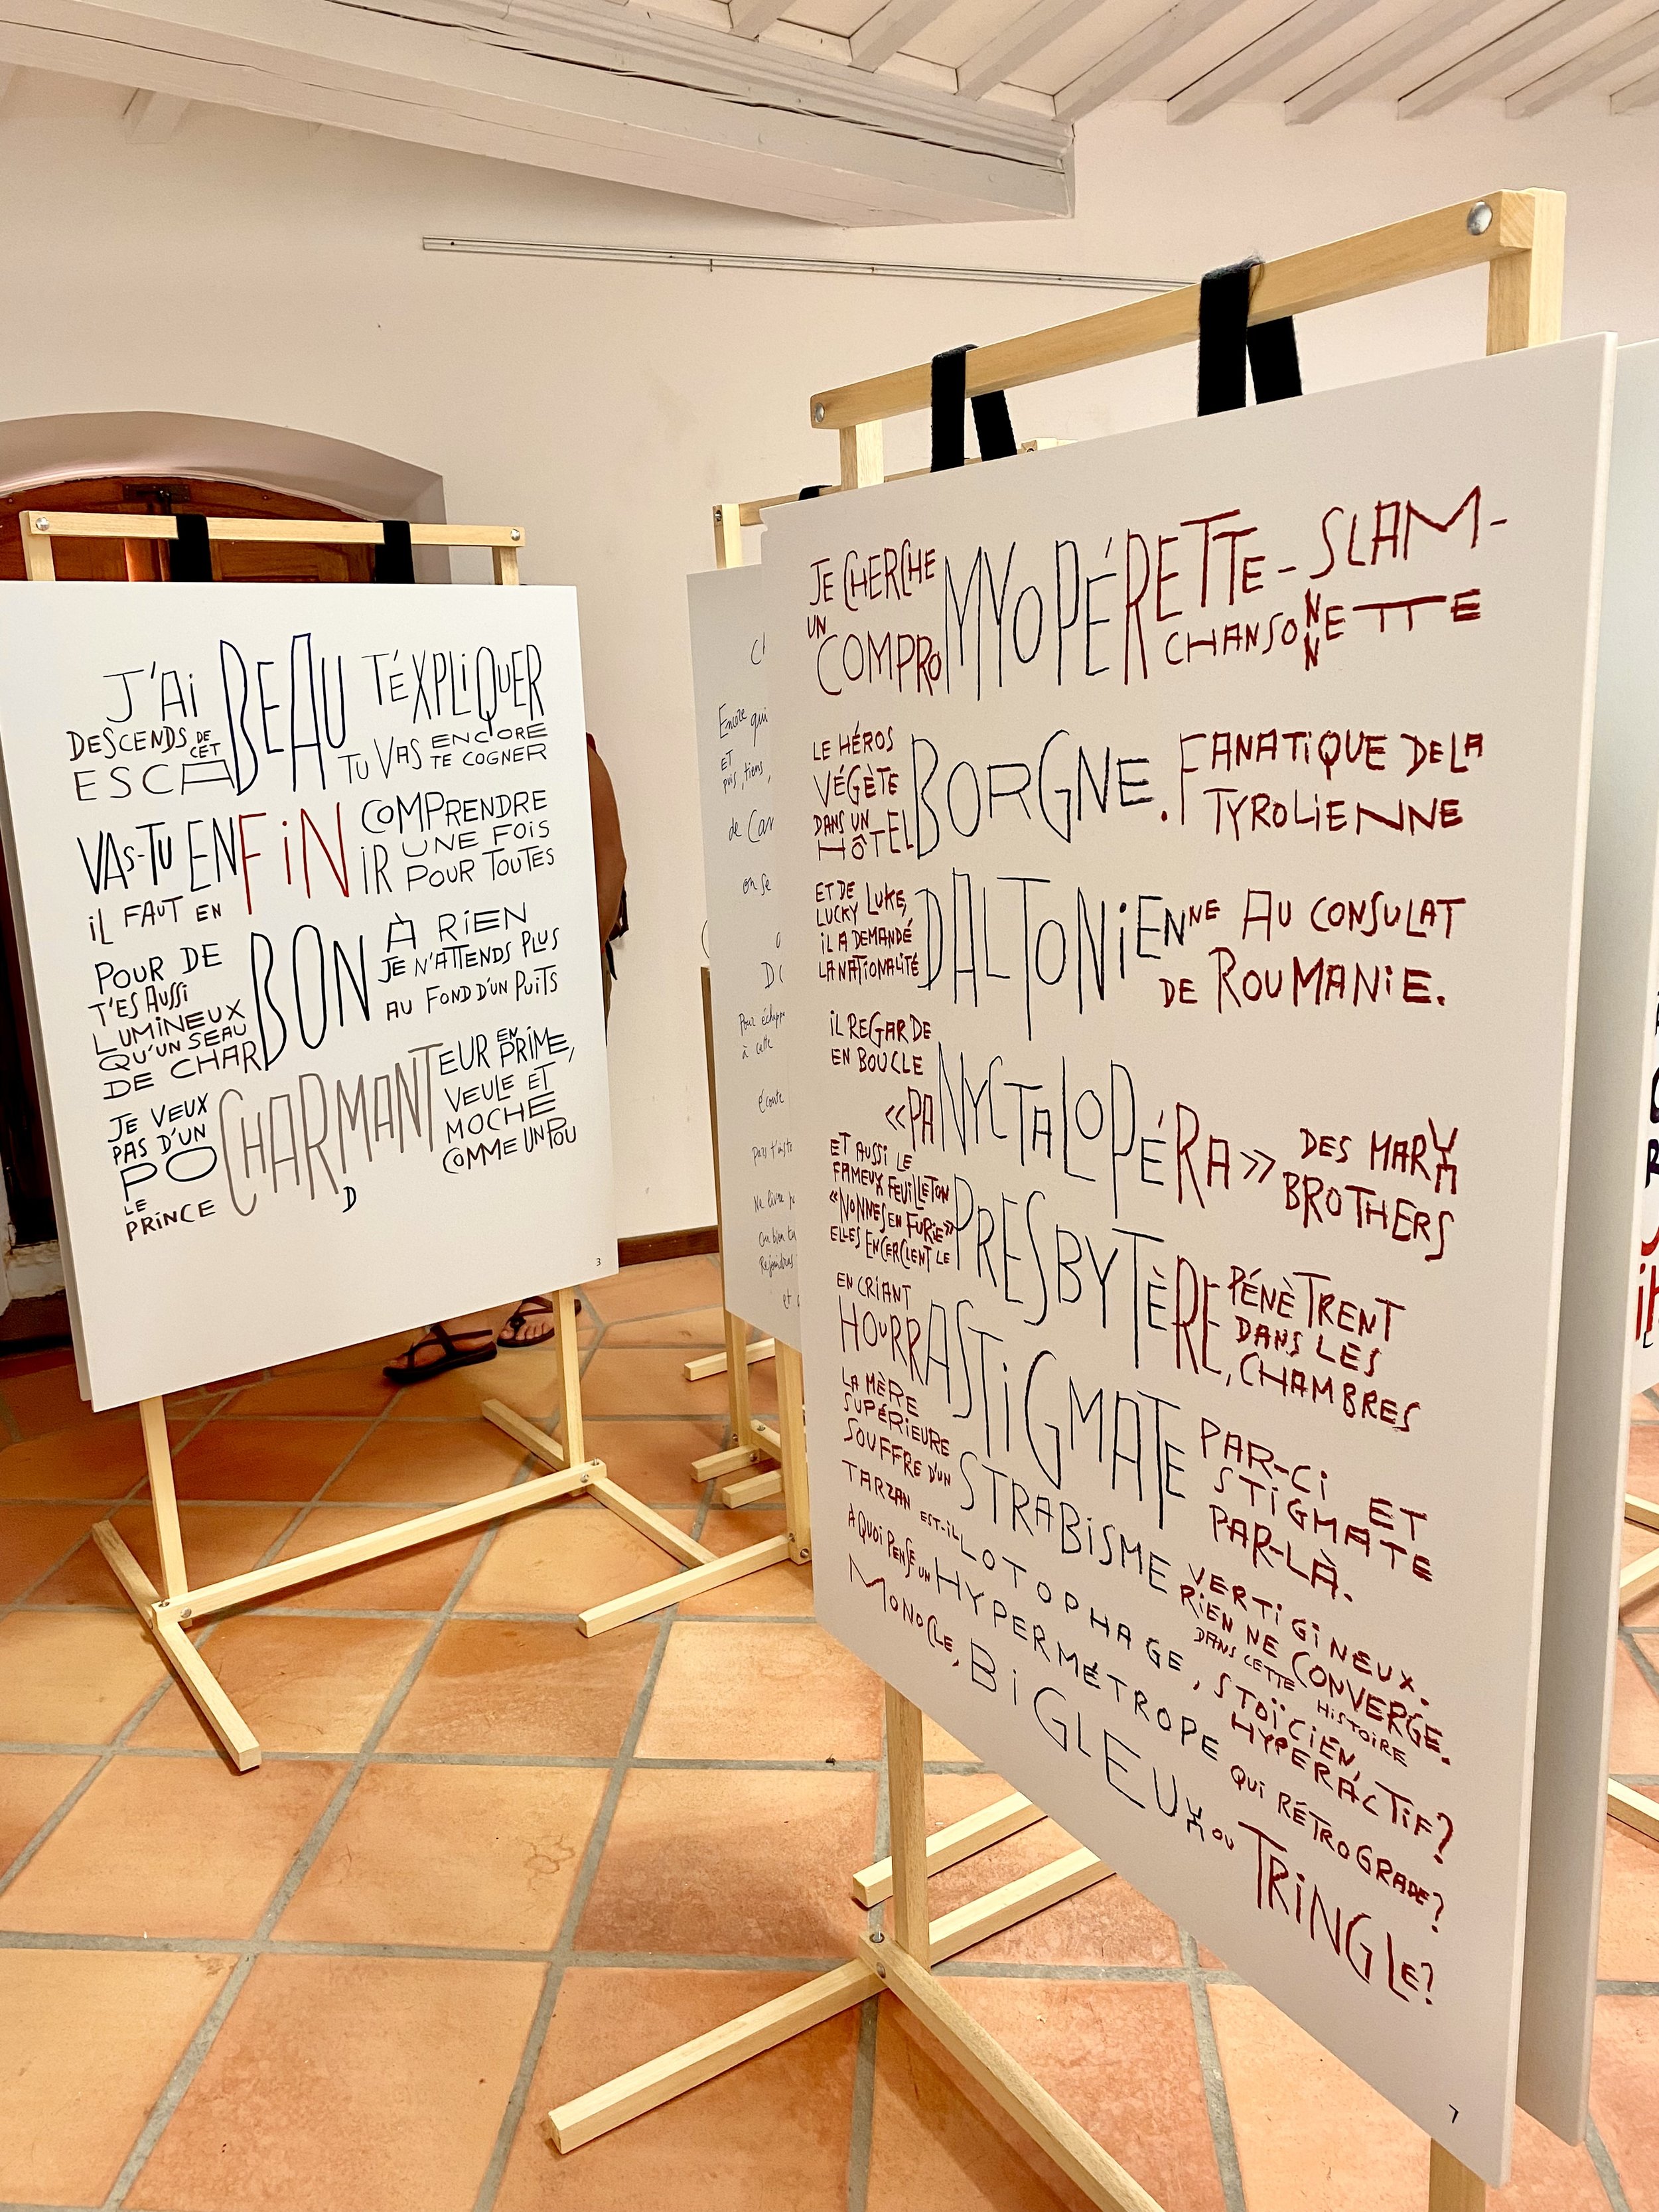 J'AI BEAU T'ÉXPLIQUER
DESCENDS DE CET ESCABEAU TU VAS ENCORE TE COGNER
VAS-TU ENFIN COMPRENDRE
UNE FOIS
IL FAUT EN FINIR POUR TOUTES
POUR DE BON À RIEN
T'ES AUSSI JE N'ATTENDS PLUS
LUMINEUX AU FOND D'UN PUITS
QU'UN SEAU
DE CHARBON
JE VEUX CHARMANTEUR EN PRIME,
PAS D'UN VEULE ET
PO MOCHE
LE COMME UN POU
PRINCE D
3
Encore qui
ET
puis, tiens,
de Car
on se
à cette
écoute
et
JE CHERCHE MYOPÉRETTE-SLAM-
UN COMPROMYOPÉRETTE CHANSONNETTE
LE HÉROS
VÉGÈTE
DANS UN
HÔTEL BORGNE. FANATIQUE DE LA
TYROLIENNE
ET DE
LUCKY LUKE,
IL A DEMANDÉ
LA NATIONALITÉ DALTONIENNE AU CONSULAT
DE ROUMANIE.
IL REGARDE
EN BOUCLE
«PANYCTALOPÉRA» DES MARX
BROTHERS
ET AUSSI LE
FAMEUX FEUILLETON
«NONNES EN FURIE»
ELLES ENCERCLENT LE PRESBYTÈRE, PÉNÈTRENT
DANS LES
CHAMBRES
EN CRIANT
HOURRASTIGMATE PAR-CI ET
STIGMATE
PAR-LÀ.
LA MÈRE
SUPÉRIEURE
SOUFFRE D'UN STRABISME VERTIGINEUX.
RIEN NE CONVERGE.
DANS CETTE HISTOIRE
TARZAN EST-IL LOTOPHAGE, STOÏCIEN, HYPERACTIF?
À QUOI PENSE UN HYPERMÉTROPE QUI RÉTROGRADE?
MONOCLE, BIGLEUX OU TRINGLE?
7